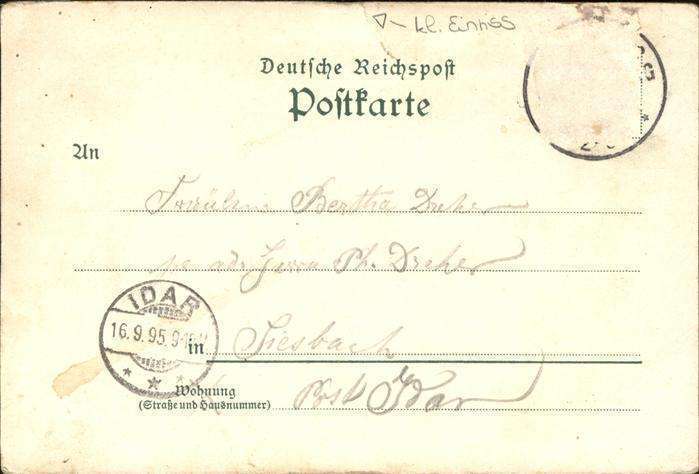 kl. Einriss
Deutsche Reichspost
Postkarte
An
Fräulein Bertha Dreher
Herrn Ph. Dreher
IDAR
16.9.95.9-
in Siesbach
Wohnung
(Straße und Hausnummer)
Post Idar